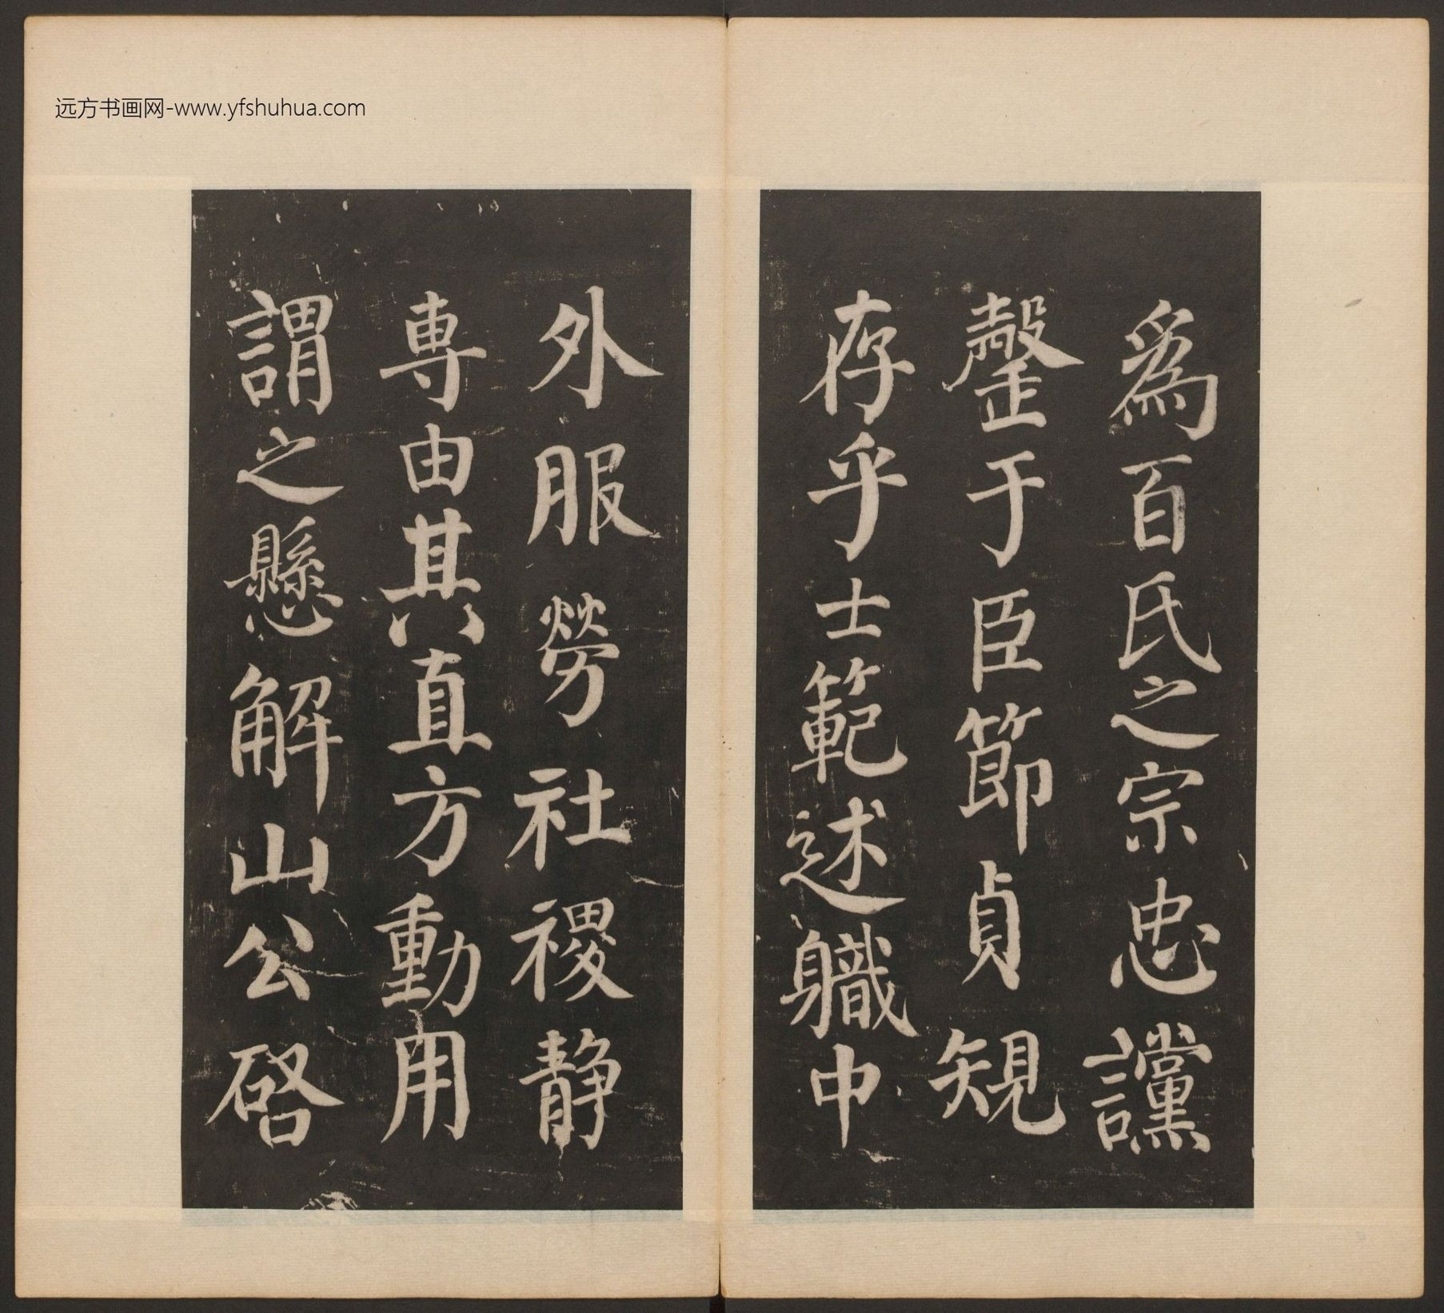 远方书画网-www.yfshuhua.com
爲百氏之宗忠讜
罄于臣節貞規
存乎士範述職中
外服勞社稷静
専由其直方動用
謂之懸解山公啓